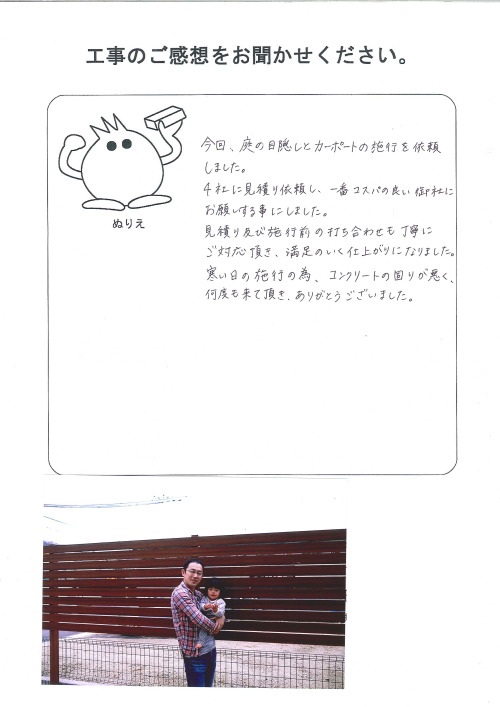 工事のご感想をお聞かせください。
ぬりえ
今回、庭の目隠しとカーポートの施行を依頼
しました。
4社に見積り依頼し、一番コスパの良い御社に
お願いする事にしました。
見積り及び施行前の打ち合わせも丁寧に
ご対応頂き、満足のいく仕上がりになりました。
寒い日の施行の為、コンクリートの固りが悪く、
何度も来て頂き、ありがとうございました。